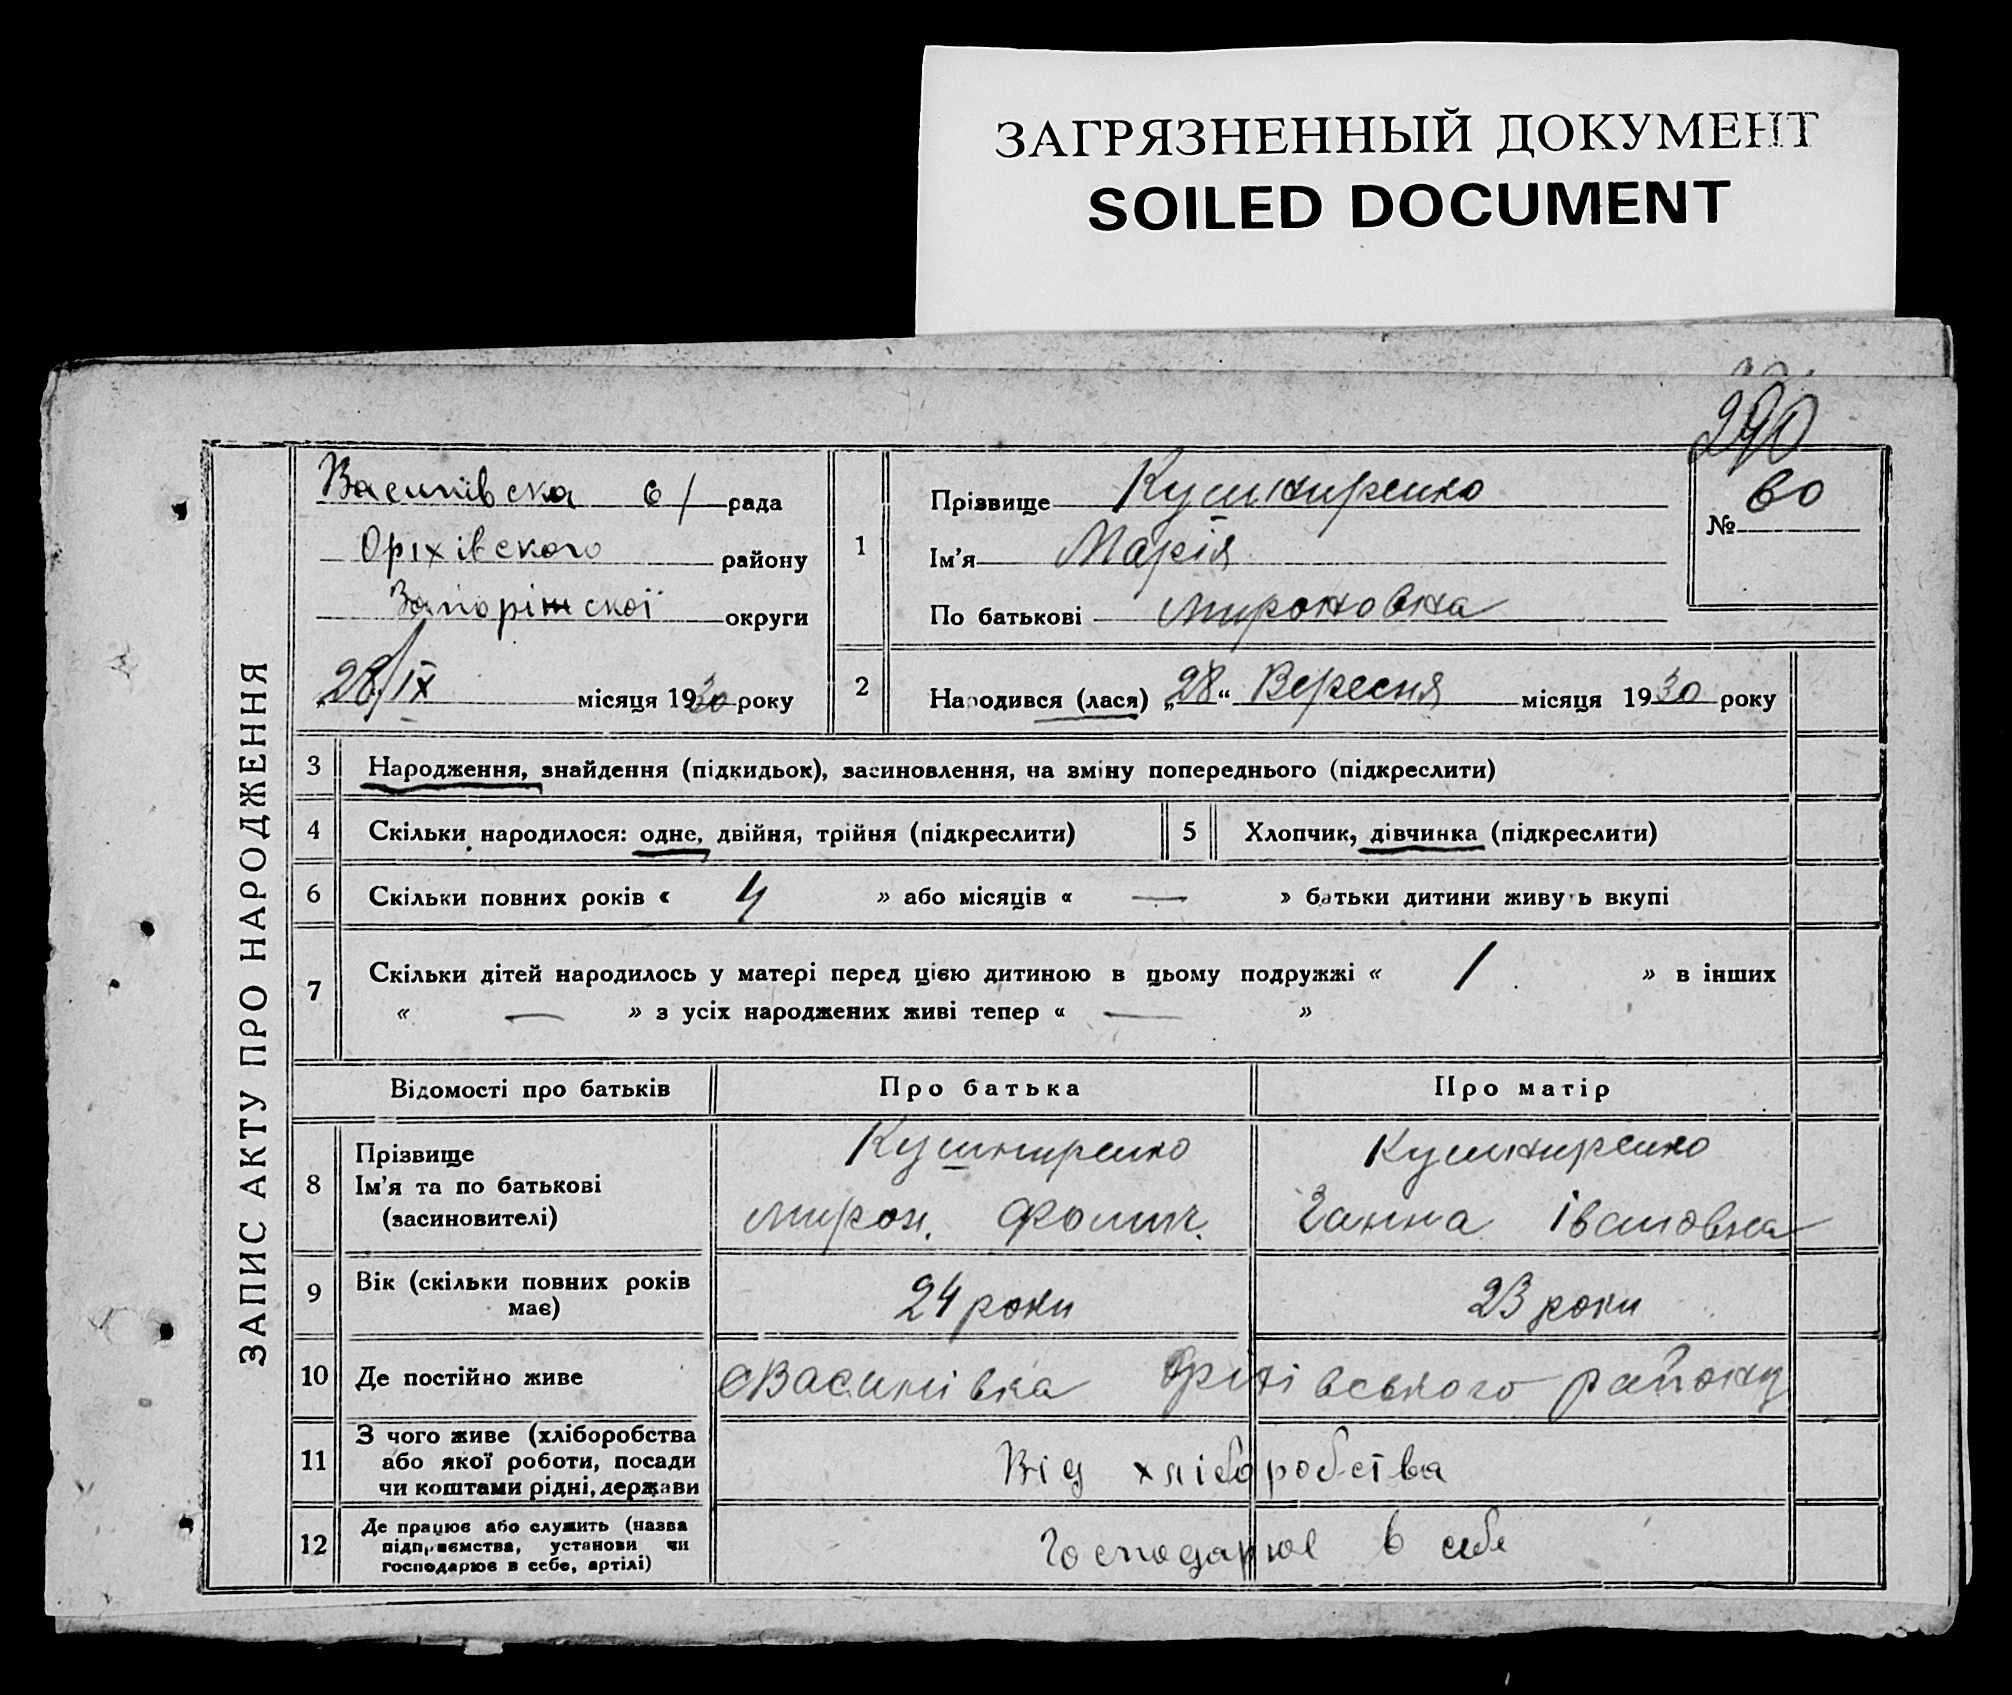 ЗАГРЯЗНЕННЫЙ ДОКУМЕНТ
SOILED DOCUMENT
290
ЗАПИС АКТУ ПРО НАРОДЖЕННЯ
Василівска с/ рада
Оріхівского району
Запоріжскої округи
28/IX місяця 1930 року
1
Прізвище Кушниренко
Ім'я Марія
По батькові Мироновна
№ 60
2
Народився (лася) „28“ Вересня місяця 1930 року
3 Народження, знайдення (підкидьок), засиновлення, на зміну попереднього (підкреслити)
4 Скільки народилося: одне, двійня, трійня (підкреслити) 5 Хлопчик, дівчинка (підкреслити)
6 Скільки повних років « 4 » або місяців « — » батьки дитини живуть вкупі
7 Скільки дітей народилось у матері перед цією дитиною в цьому подружжі « 1 » в інших
« — » з усіх народжених живі тепер « — »
Відомості про батьків Про батька Про матір
8 Прізвище
Ім'я та по батькові
(засиновителі)
Кушниренко
Мирон. Фомич.
Кушниренко
Ганна Івановна
9 Вік (скільки повних років
має)
24 роки
23 роки
10 Де постійно живе
с Василівка Оріхівського району
11 З чого живе (хліборобства
або якої роботи, посади
чи коштами рідні, держави
Від хліборобства
12 Де працює або служить (назва
підприємства, установи чи
господарює в себе, артілі)
Господарює в себе